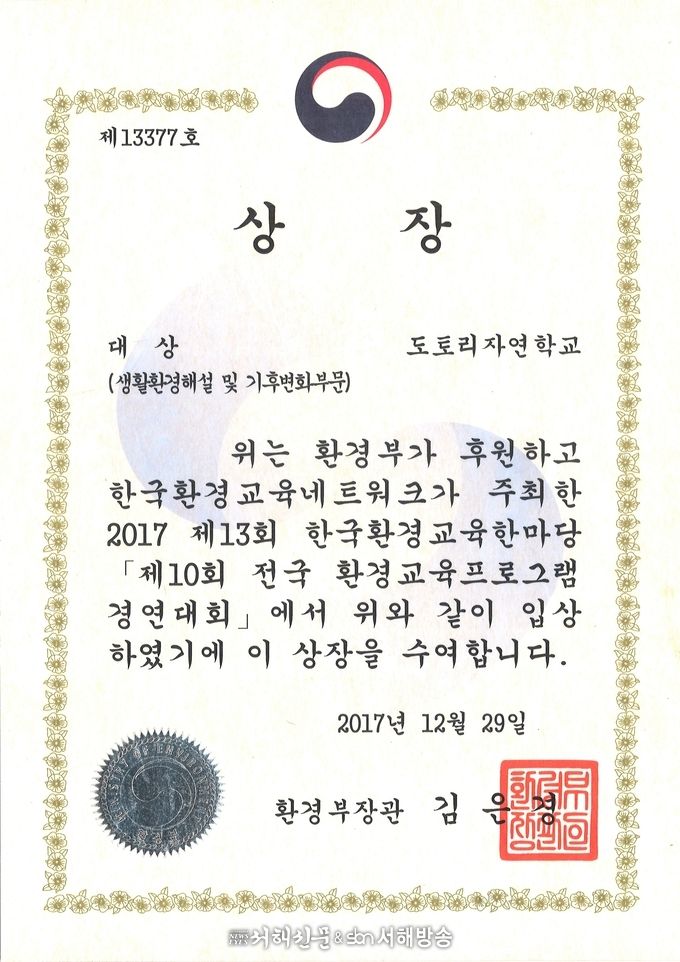 제13377호
상 장
대 상 도토리자연학교
(생활환경해설 및 기후변화부문)
위는 환경부가 후원하고
한국환경교육네트워크가 주최한
2017 제13회 한국환경교육한마당
「제10회 전국 환경교육프로그램
경연대회」에서 위와 같이 입상
하였기에 이 상장을 수여합니다.
2017년 12월 29일
환경부장관 김은경
서해신문&sbn서해방송